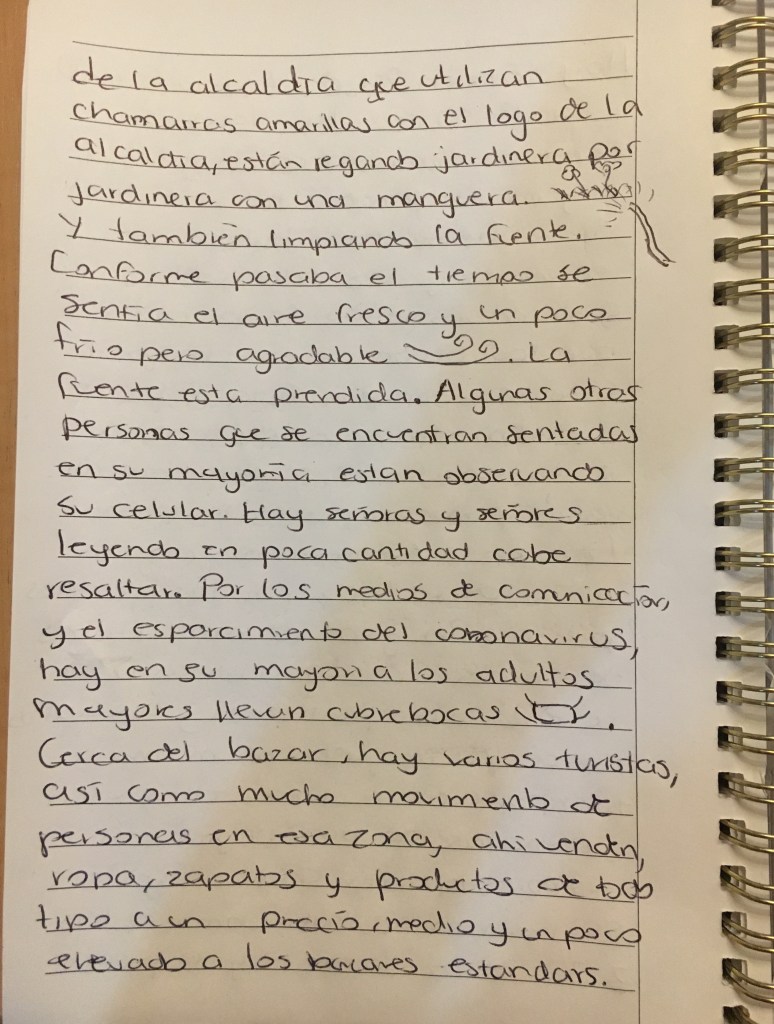 de la alcaldía que utilizan
chamarras amarillas con el logo de la
alcaldía, están regando jardinera por
jardinera con una manguera.
Y también limpiando la fuente.
Conforme pasaba el tiempo se
sentía el aire fresco y un poco
frío pero agradable . La
fuente esta prendida. Algunas otras
personas que se encuentran sentadas
en su mayoría estan observando
su celular. Hay señoras y señores
leyendo en poca cantidad cabe
resaltar. Por los medios de comunicación,
y el esparcimiento del coronavirus,
hay en su mayoria los adultos
mayores llevan cubrebocas .
Cerca del bazar, hay varios turistas,
así como mucho movimiento de
personas en esa zona, ahi venden,
ropa, zapatos y productos de todo
tipo a un precio, medio y un poco
elevado a los bazares estandars.